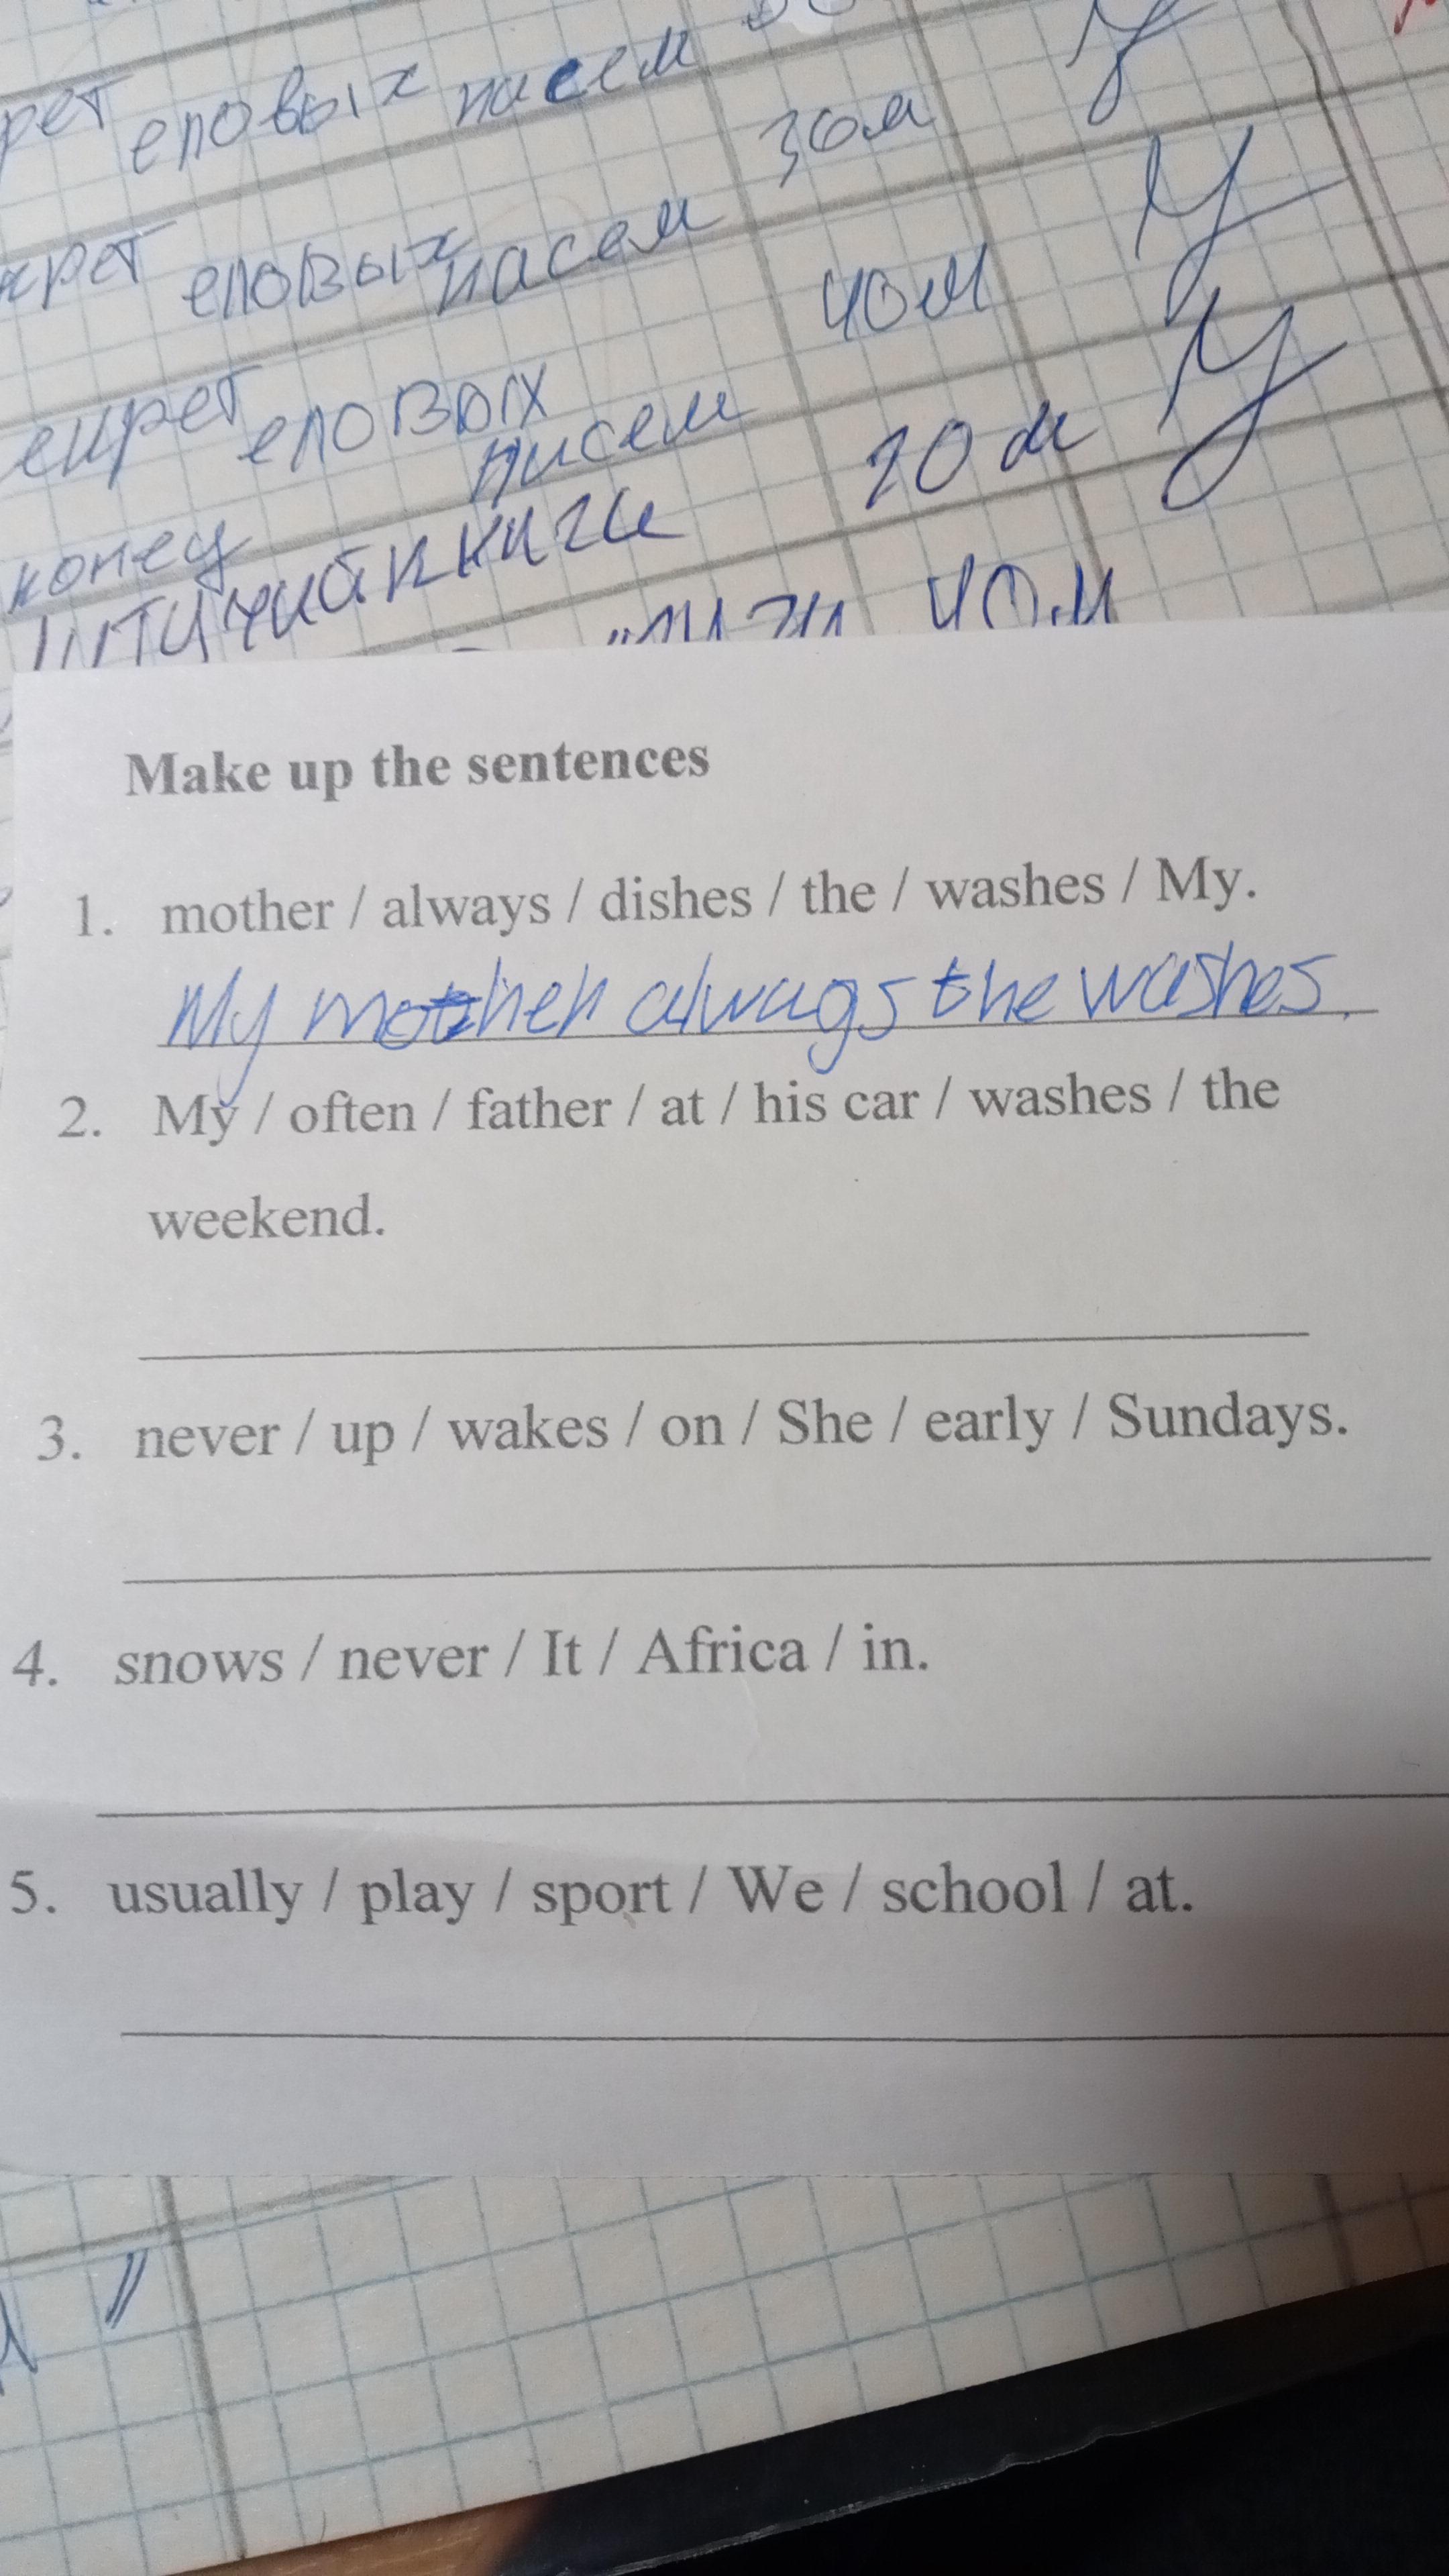 еловых писем
30м У
крет еловых писем
40м У
екрет еловых писем
20м У
конец
птичий книги
40м
Make up the sentences
1. mother / always / dishes / the / washes / My.
My mother always the washes.
2. My / often / father / at / his car / washes / the
weekend.
3. never / up / wakes / on / She / early / Sundays.
4. snows / never / It / Africa / in.
5. usually / play / sport / We / school / at.